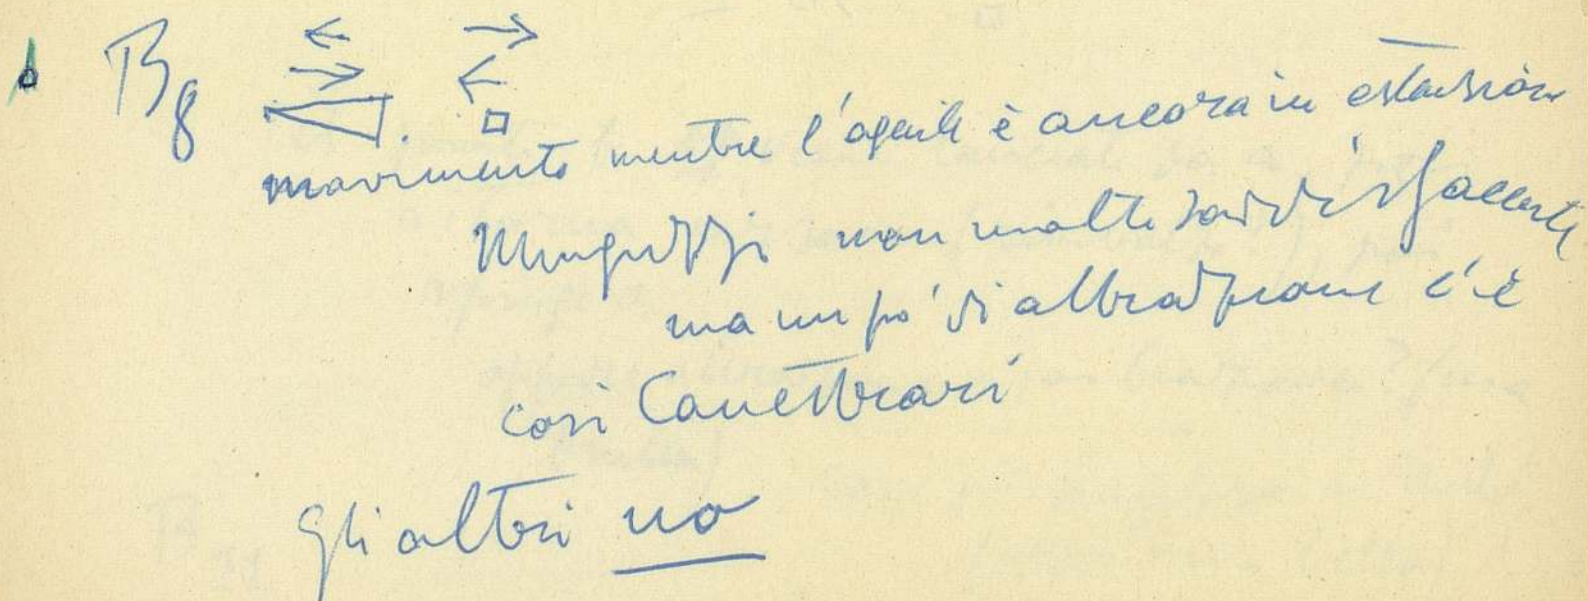 B8
movimento mentre l'aguile è ancora in estensione
Minguzzi non molto soddisfacente
ma un po' di attrazione c'è
così Canestrari
gli altri no